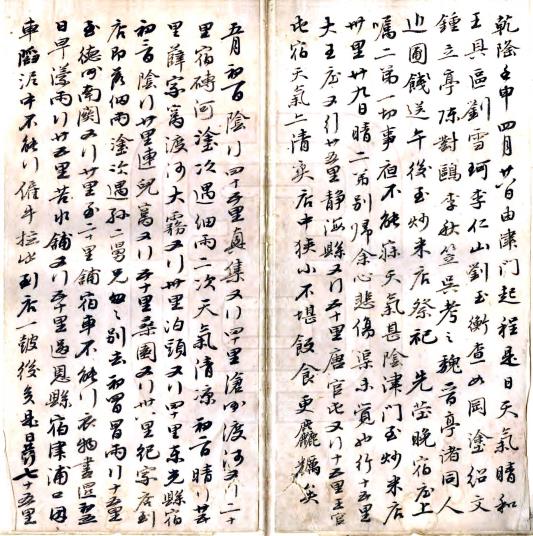 乾隆壬申四月廿八日由津門起程是日天氣晴和
王具區劉雪珂李仁山劉玉衡查如岡塗紹文
鍾立亭陈對鷗李秋笠吳考之魏音亭諸同人
出圃餞送午後至炒米店祭祀 先茔晚宿店上
囑二弟一切事夜不能寐天氣甚陰津門至炒米店
卅里廿九日晴二弟別归余心悲傷
行十五里
大王庄又行廿五里静海縣又行五十里唐官屯又行十五里王官
屯宿天氣上清爽店中狭小不堪飯食更麤糲矣
五月初一日陰行四十五里
集又行四十里滄州渡河又行二十
里宿磚河塗次遇细雨二次天氣清凉初二日晴行廿五
里薛家窩渡河大霧又行卅里泊頭又行四十里东光縣宿
初三日陰行廿里連兒窩又行五十里桑園又行廿八里纪家店到
店即落细雨塗次遇孫二
兄匆匆別去初四日冒雨行十五里
至德州南関又行廿里至二十里鋪宿車不能行衣物書還
日早濛雨行廿五里苦水鋪又行五十里過恩縣宿津浦口因
車陷泥中不能行催牛拉出到店一鼓後矣是日行七十五里